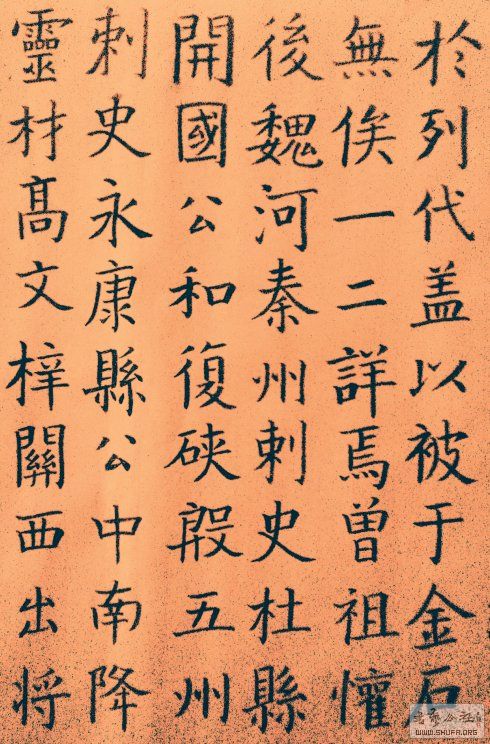 於列代盖以被于金石
無俟一二詳焉曽祖懽
後魏河秦州刺史杜縣
開國公和復硤殷五州
刺史永康縣公中南降
靈材髙文梓關西出将
WWW.SHUFA.ORG